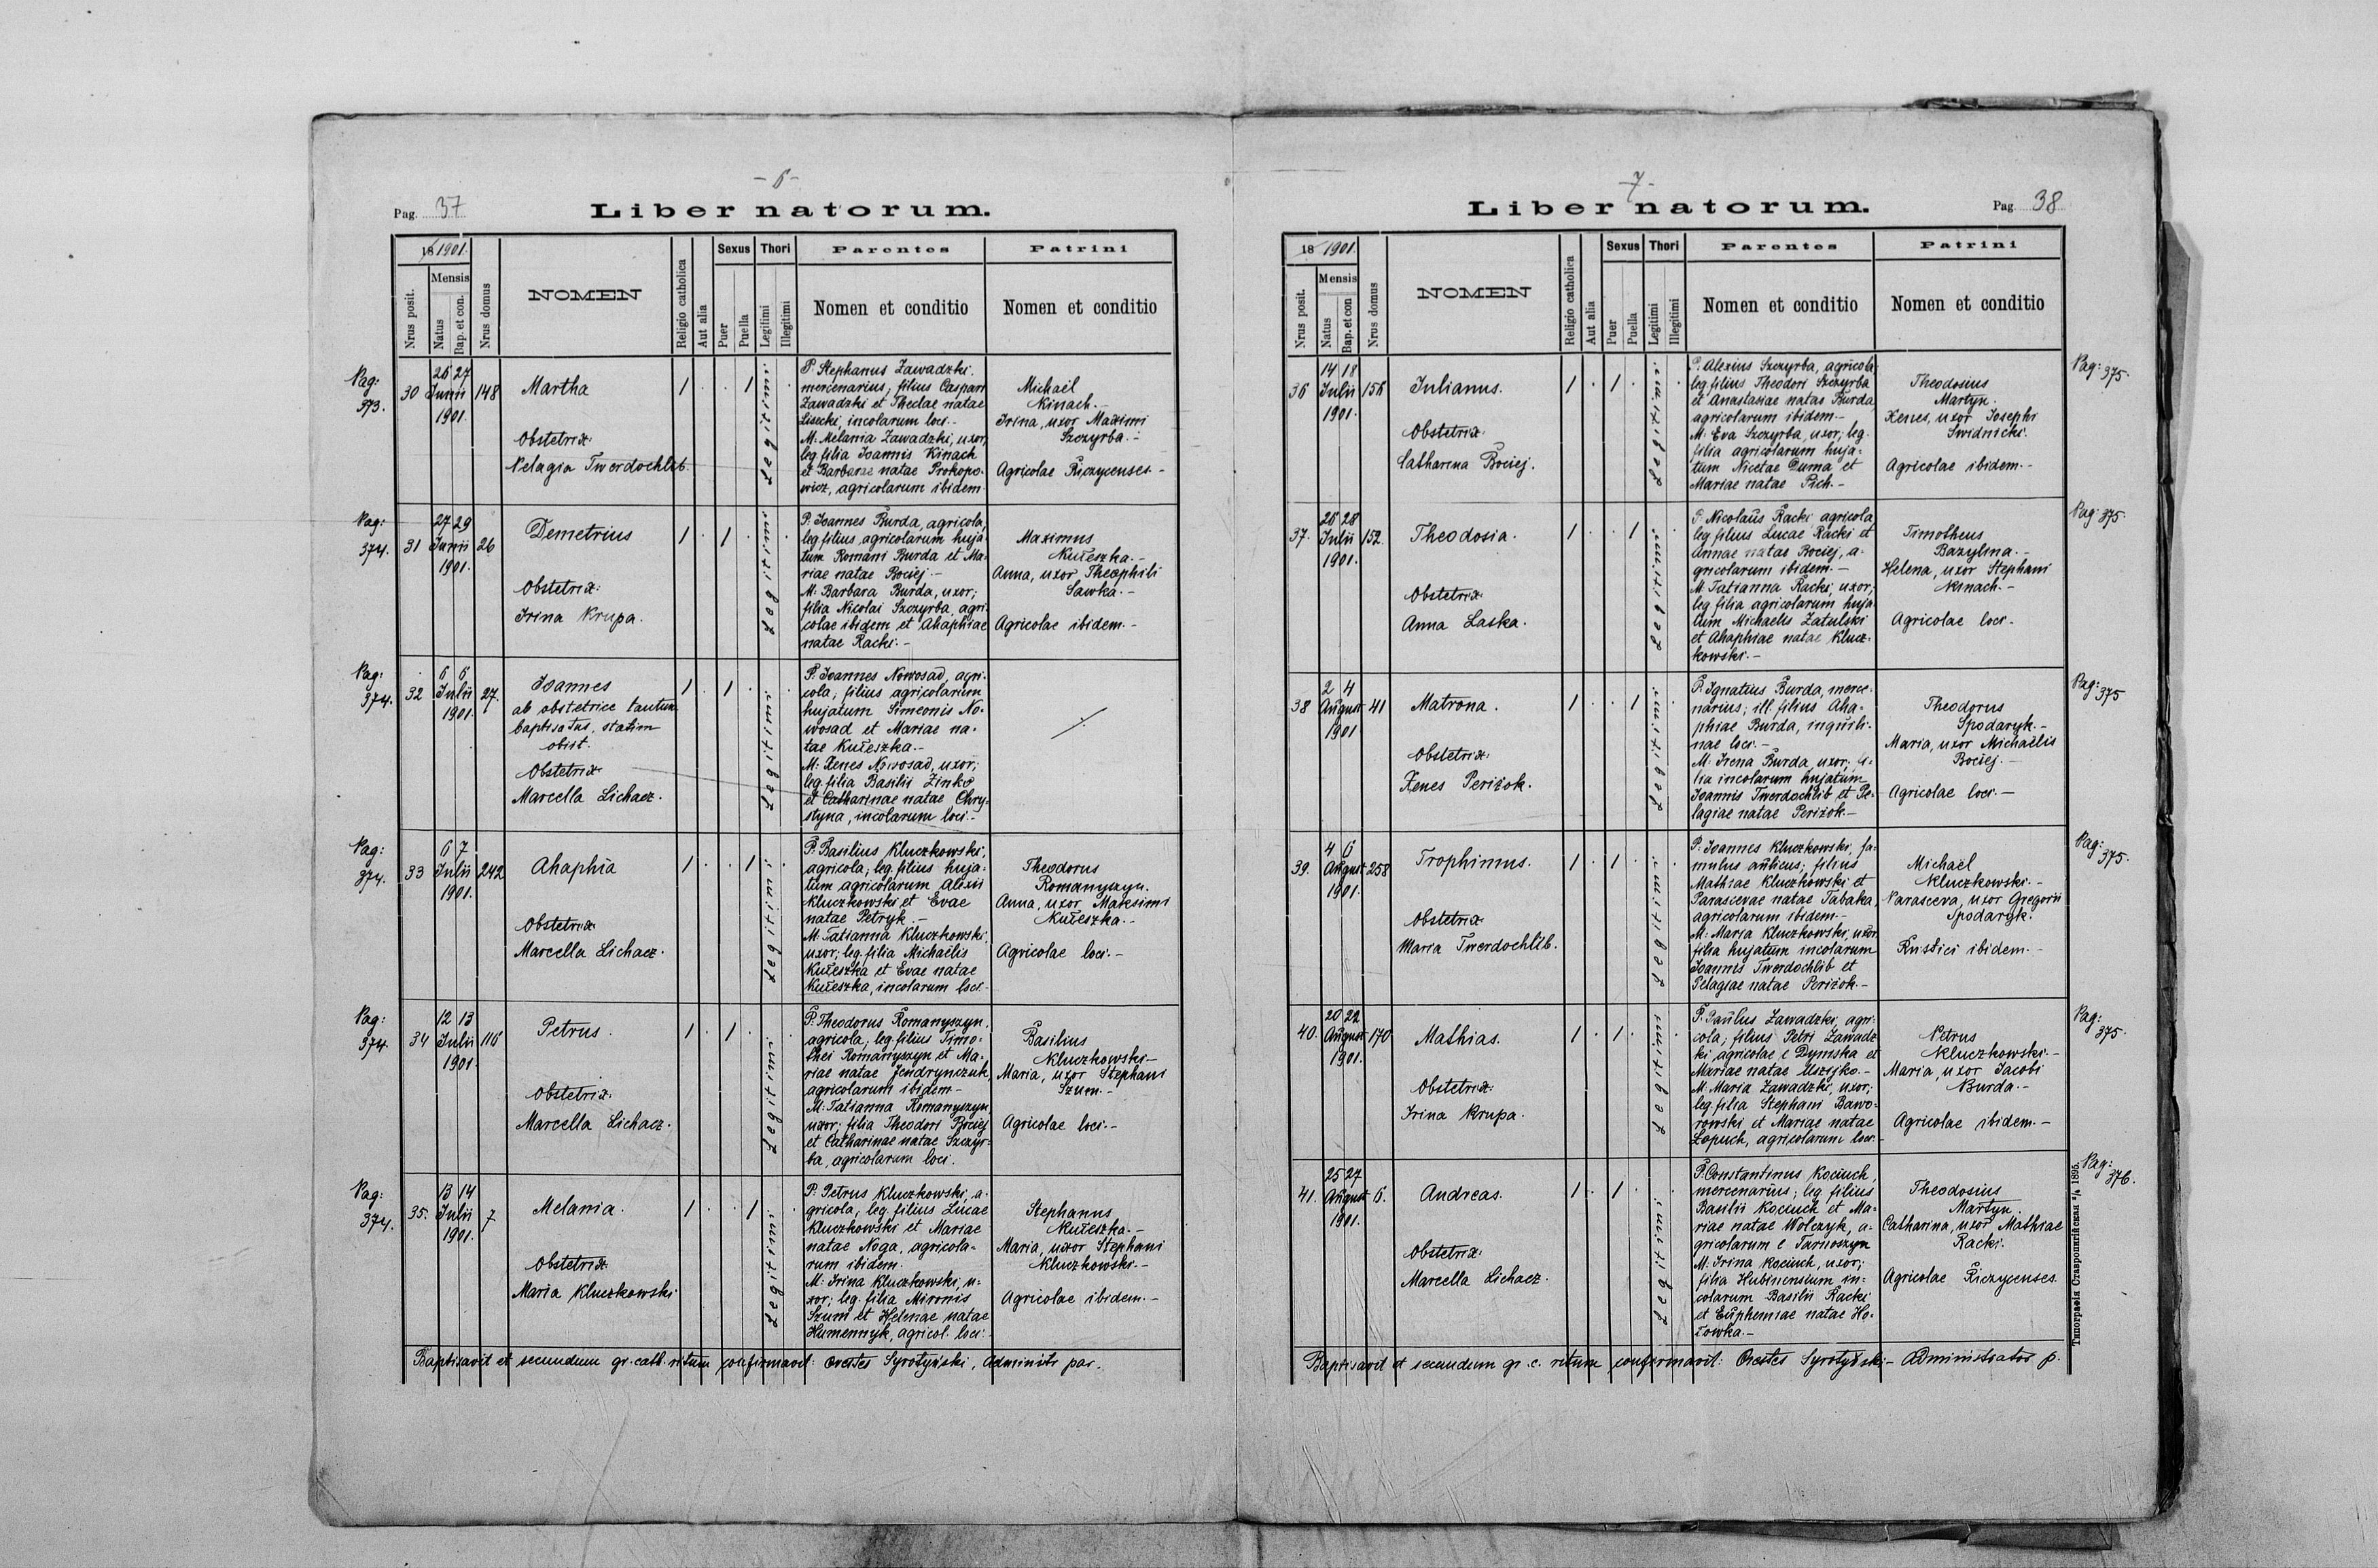 - 6 -
Pag. 37
Liber natorum.
18 1901.
Nrus posit.
Mensis
Natus
Bap. et con.
Nrus domus
NOMEN
Religio catholica
Aut alia
Sexus
Puer
Puella
Thori
Legitimi
Illegitimi
Parentes
Nomen et conditio
Patrini
Nomen et conditio
Pag:
373.
30
26 27
Junii
1901.
148
Martha
Obstetrix:
Pelagia Twerdochlib.
1 . . 1
Legitimi
P. Stephanus Zawadzki,
mercenarius; filius Caspari
Zawadzki et Theclae natae
Lisecki, incolarum loci.-
M. Melania Zawadzki, uxor,
leg. filia Joannis Kinach
et Barbarae natae Prokopo-
wicz, agricolarum ibidem
Michaël
Kinach.-
Irina, uxor Maximi
Szczyrba.-
Agricolae Riczycenses.-
Pag:
374.
31
27 29
Junii
1901.
26
Demetrius
Obstetrix:
Irina Krupa.
1 . 1 .
Legitimi
P. Joannes Burda, agricola,
leg. filius agricolarum huja-
tum Romani Burda et Ma-
riae natae Bociej.-
M. Barbara Burda, uxor;
filia Nicolai Szczyrba, agri-
colae ibidem et Ahaphiae
natae Racki.-
Maximus
Kułeszka.-
Anna, uxor Theophili
Sawka.-
Agricolae ibidem.-
Pag:
374.
32
6 6
Julii
1901.
27.
Joannes
ab obstetrice tantum
baptisatus, statim
obiit.
Obstetrix
Marcella Lichacz.
1 . 1 .
Legitimi
P. Joannes Nowosad, agri-
cola; filius agricolarum
hujatum Simeonis No-
wosad et Mariae na-
tae Kułeszka.-
M: Xenes Nowosad, uxor;
leg. filia Basilii Zinko
et Catharinae natae Chry-
styna, incolarum loci.-
Pag:
374.
33
6 7
Julii
1901.
242
Ahaphia
Obstetrix
Marcella Lichacz.
1 . . 1
Legitimi
P. Basilius Kluczkowski,
agricola; leg. filius huja-
tum agricolarum Alexii
Kluczkowski et Evae
natae Petryk.-
M. Tatianna Kluczkowski,
uxor; leg. filia Michaëlis
Kułeszka et Evae natae
Kułeszka, incolarum loci.-
Theodorus
Romanyszyn.
Anna, uxor Maksimi
Kułeszka.-
Agricolae loci.-
Pag:
374.
34
12 13
Julii
1901.
116
Petrus.
Obstetrix:
Marcella Lichacz.
1 . 1 .
Legitimi
P. Theodorus Romanyszyn,
agricola, leg. filius Timo-
thei Romanyszyn et Ma-
riae natae Jendrynczuk,
agricolarum ibidem-
M: Tatianna Romanyszyn,
uxor; filia Theodori Bociej
et Catharinae natae Szczyr-
ba, agricolarum loci.
Basilius
Kluczkowski-
Maria, uxor Stephani
Szum.-
Agricolae loci.-
Pag:
374.
35.
13 14
Julii
1901.
7
Melania.
Obstetrix
Maria Kluczkowski
1 . . 1
Legitimi
P. Petrus Kluczkowski, a-
gricola, leg. filius Lucae
Kluczkowski et Mariae
natae Noga, agricola-
rum ibidem.
M: Irina Kluczkowski, u-
xor; leg. filia Mironis
Szum et Helenae natae
Humennyk, agricol. loci.
Stephanus
Kułeszka.-
Maria, uxor Stephani
Kluczkowski.-
Agricolae ibidem.-
Baptisavit et secundum gr. cath. ritum confirmavit: Orestes Syrotyński, Administr par.
- 7 -
Liber natorum.
Pag 38
18 1901.
Nrus posit.
Mensis
Natus
Bap. et con
Nrus domus
NOMEN
Religio catholica
Aut alia
Sexus
Puer
Puella
Thori
Legitimi
Illegitimi
Parentes
Nomen et conditio
Patrini
Nomen et conditio
36
14 18
Julii
1901.
156
Julianus.
Obstetrix:
Catharina Bociej.
1 . 1 .
Legitimi
P. Alexius Szczyrba, agricola
leg. filius Theodori Szczyrba
et Anastasiae natae Burda,
agricolarum ibidem.-
M. Eva Szczyrba, uxor; leg.
filia agricolarum huja-
tum Nicetae Duma et
Mariae natae Pich.-
Theodosius
Martyn.
Xenes, uxor Josephi
Swidnicki.
Agricolae ibidem.-
Pag: 375.
37.
26 28
Julii
1901.
152.
Theodosia.
Obstetrix:
Anna Laska.
1 . . 1
Legitimi
P. Nicolaus Racki agricola
leg. filius Lucae Racki et
Annae natae Bociej, a-
gricolarum ibidem.-
M. Tatianna Racki, uxor;
leg. filia agricolarum huja
tum Michaelis Zatulski
et Ahaphiae natae Klucz-
kowski.-
Timotheus
Bazylma.-
Helena, uxor Stephani
Kinach.-
Agricolae loci-
Pag: 375.
38
2 4
August
1901
41
Matrona.
Obstetrix:
Xenes Periżok.
1 . . 1
Legitimi
P. Ignatius Burda, merce-
narius; ill. filius Aha-
phiae Burda, inquili-
nae loci.-
M. Irena Burda, uxor; fi-
lia incolarum hujatum
Joannis Twerdochlib et Pe-
lagiae natae Periżok.-
Theodorus
Spodaryk.-
Maria, uxor Michaëlis
Bociej.-
Agricolae loci.-
Pag: 375
39.
4 6
August
1901.
258
Trophimus.
Obstetrix
Maria Twerdochlib.
1 . 1 .
Legitimi
P. Joannes Kluczkowski, fa-
mulus aulicus; filius
Mathiae Kluczkowski et
Parascevae natae Tabaka,
agricolarum ibidem.-
M: Maria Kluczkowski, uxor
filia hujatum incolarum
Joannis Twerdochlib et
Pelagiae natae Periżok.-
Michaël
Kluczkowski.-
Parasceva, uxor Gregorii
Spodaryk.
Rustici ibidem.-
Pag: 375.
40.
20 22
August
1901.
170
Mathias.
Obstetrix:
Irina Krupa.
1 . 1 .
Legitimi
P. Paulus Zawadzki, agri-
cola; filius Petri Zawadz
ki, agricolae e Dymska et
Mariae natae Uszyjko.-
M. Maria Zawadzki, uxor;
leg. filia Stephani Bawo-
rowski et Mariae natae
Łopuch, agricolarum loci.-
Petrus
Kluczkowski.-
Maria, uxor Jacobi
Burda.-
Agricolae ibidem.-
Pag: 375.
41.
25 27
August
1901.
6.
Andreas.
Obstetrix:
Marcella Lichacz.
1 . 1 .
Legitimi
P. Constantinus Kociuch,
mercenarius; leg. filius
Basilii Kociuch et Ma-
riae natae Wolczyk, a-
gricolarum e Tarnoszyn
M. Irina Kociuch, uxor;
filia Hubinensium in-
colarum Basilii Racki
et Euphemiae natae Ho-
łowka.-
Theodosius
Martyn.
Catharina, uxor Mathiae
Racki.
Agricolae Riczycenses.
Pag: 376.
Baptisavit et secundum gr. c. ritum confirmavit: Orestes Syrotyński- Administrator p.
Типографія Ставропигійская 1895.